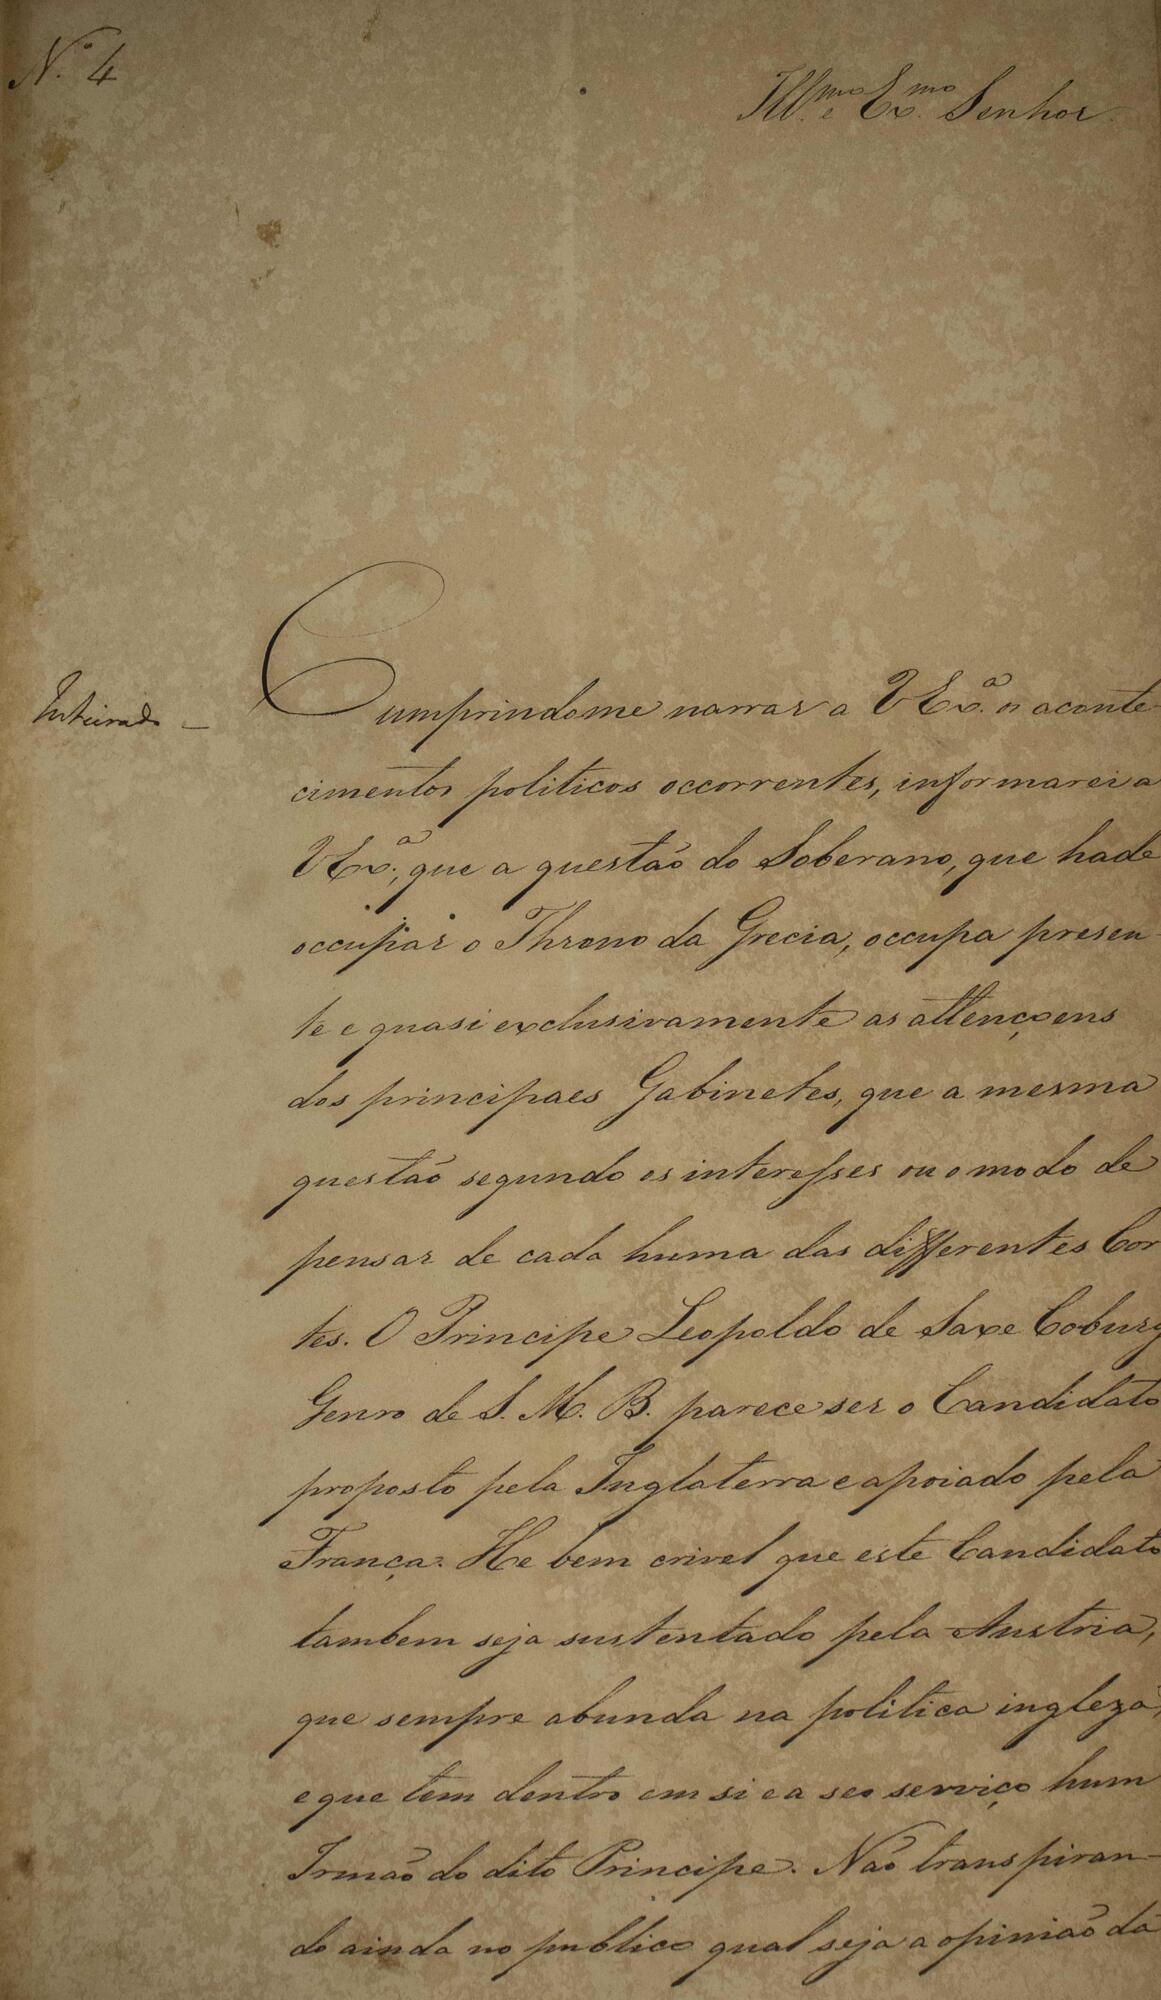 Nº 4
Illmo. e Exmo. Senhor.
Inteirado –
Cumprindome narrar a V Exª. os aconte-
cimentos politicos occorrentes, informarei a
V Exª; que a questaõ do Soberano, que hade
occupar o Throno da Grecia, occupa presen-
te e quasi exclusivamente as attençoens
dos principaes Gabinetes, que a mesma
questaõ segundo os interesses ou o modo de
pensar de cada huma das differentes Cor
tes. O Principe Leopoldo de Saxe Coburg
Genro de S. M. B. parece ser o Candidato
proposto pela Inglaterra e apoiado pela
França. He bem crivel que este Candidato
tambem seja sustentado pela Austria,
que sempre abunda na politica ingleza,
e que tem dentro em si e a seo serviço hum
Irmaõ do dito Principe. Naõ transpiran-
do ainda no publico qual seja a opiniaõ da